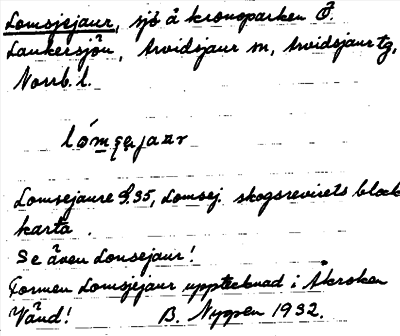 Lomsjejaur, sjö å kronoparken Ö.
Laukersjön, Arvidsjaur sn, Arvidsjaur tg,
Norrb. l.
Lomsejaure S.35, Lomsej. skogsrevirets block
karta.
Se även Lonsejaur!
Formen Lomsjejaur upptecknad i Åkroken
Vänd! B. Nyppen 1932.